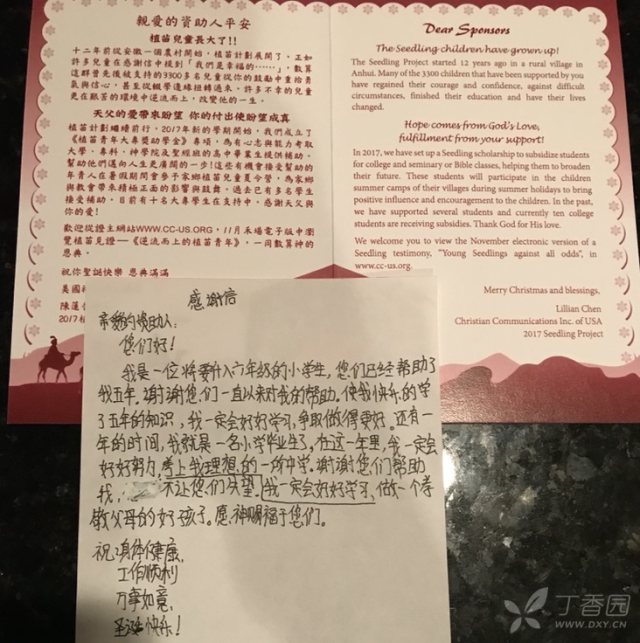 親愛的資助人平安
植苗兒童長大了!!
十二年前從安徽一個農村開始,植苗計劃展開了。正如
許多兒童在感謝信中提到「我們是幸福的……」,數算
這群曾先後被支持的3300多名兒童從你的鼓勵中重拾勇
氣與信心,甚至從輟學邊緣扭轉過來。許多不幸的兒童
更在艱苦的環境中逆流而上,改變他的一生。
天父的愛帶來盼望 你的付出使盼望成真
植苗計劃繼續前行,2017年新的學期開始,我們成立了
《植苗青年大專獎助學金》專項,為有心志與能力考取
大學、專科、神學院及聖經班的高中畢業生提供補助,
幫助他們邁向人生更廣闊的一步!這些有機會接受幫助的
年青人在暑假期間會參予家鄉植苗兒童夏令營,為家鄉
與教會帶來積極正面的影響與鼓舞。過去已有多名學生
接受補助,目前有十名大專學生在支持中。感謝天父與
你的愛!
歡迎從證主網站WWW.CC-US.ORG,11月禾場電子版中瀏
覽植苗見證──《逆流而上的植苗青年》,一同數算神的
恩典。
祝你聖誕快樂 恩典滿滿
美國
陳蓮
2017植
Dear Sponsors
The Seedling children have grown up!
The Seedling Project started 12 years ago in a rural village in
Anhui. Many of the 3300 children that have been supported by you
have regained their courage and confidence, against difficult
circumstances, finished their education and have their lives
changed.
Hope comes from God's Love,
fulfillment from your support!
In 2017, we have set up a Seedling scholarship to subsidize students
for college and seminary or Bible classes, helping them to broaden
their future. These students will participate in the children
summer camps of their villages during summer holidays to bring
positive influence and encouragement to the children. In the past, we
have supported several students and currently ten college
students are receiving subsidies. Thank God for His love.
We welcome you to view the November electronic version of a
Seedling testimony, "Young Seedlings against all odds", in
www.cc-us.org.
Merry Christmas and blessings,
Lillian Chen
Christian Communications Inc. of USA
2017 Seedling Project
感谢信
亲爱的资助人:
您们好!
我是一位将要升入六年级的小学生,您们已经帮助了
我五年。谢谢您们一直以来对我的帮助。使我快乐的学
了五年的知识,我一定会好好学习,争取做得更好。还有一
年的时间,我就是一名小学毕业生了,在这一年里,我一定会
好好努力,考上我理想的一所中学。谢谢您们帮助
我, 不让您们失望,我一定会好好学习,做一个孝
敬父母的好孩子。愿神赐福于您们。
祝:身体健康,
工作顺利
万事如意,
圣诞快乐!
丁香园
WWW.DXY.CN